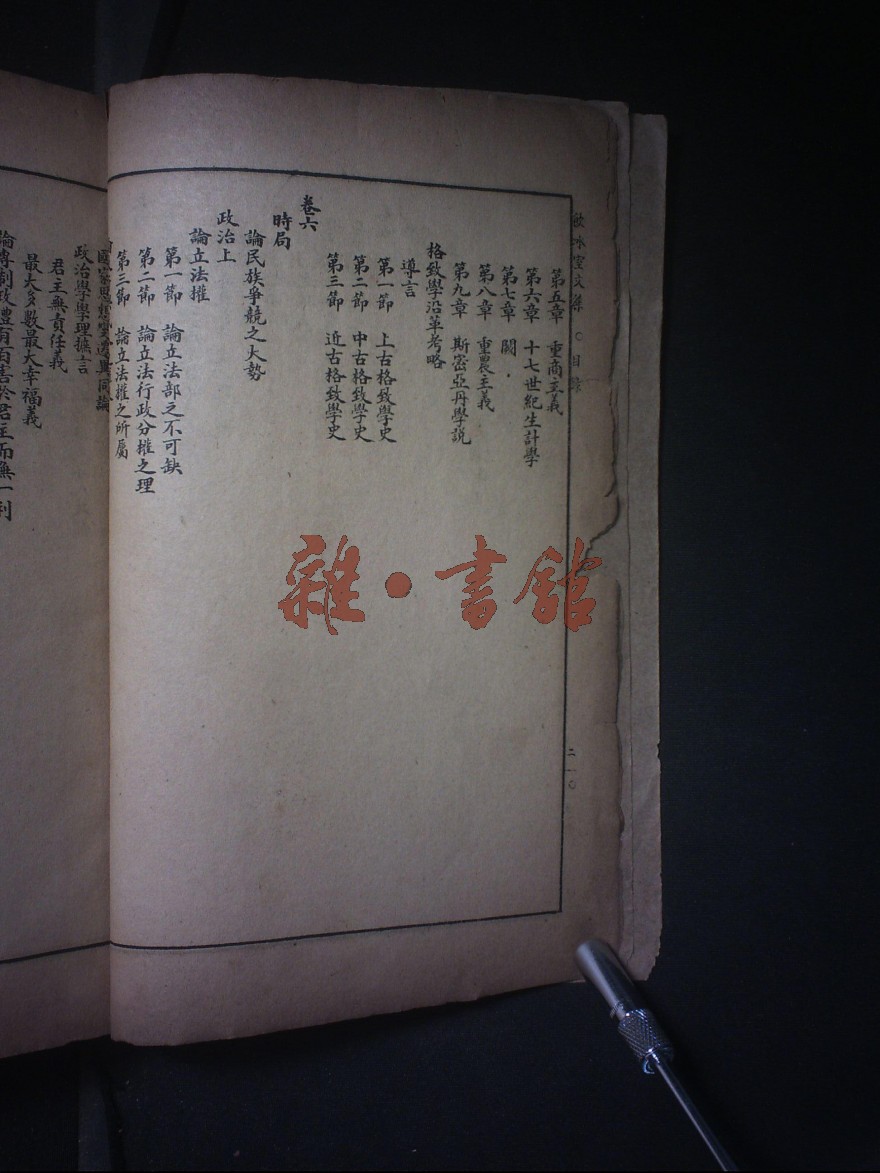 飲冰室文集 ○ 目錄
二一〇
第五章 重商主義
第六章 十七世紀生計學
第七章 闕
第八章 重農主義
第九章 斯密亞丹學說
格致學沿革考略
導言
第一節 上古格致學史
第二節 中古格致學史
第三節 近古格致學史
卷六
時局
論民族爭競之大勢
政治上
論立法權
第一節 論立法部之不可缺
第二節 論立法行政分權之理
第三節 論立法權之所屬
國家思想變遷異同論
政治學學理摭言
君主無責任義
最大多數最大幸福義
論專制政體有百害於君主而無一利
雜·書館